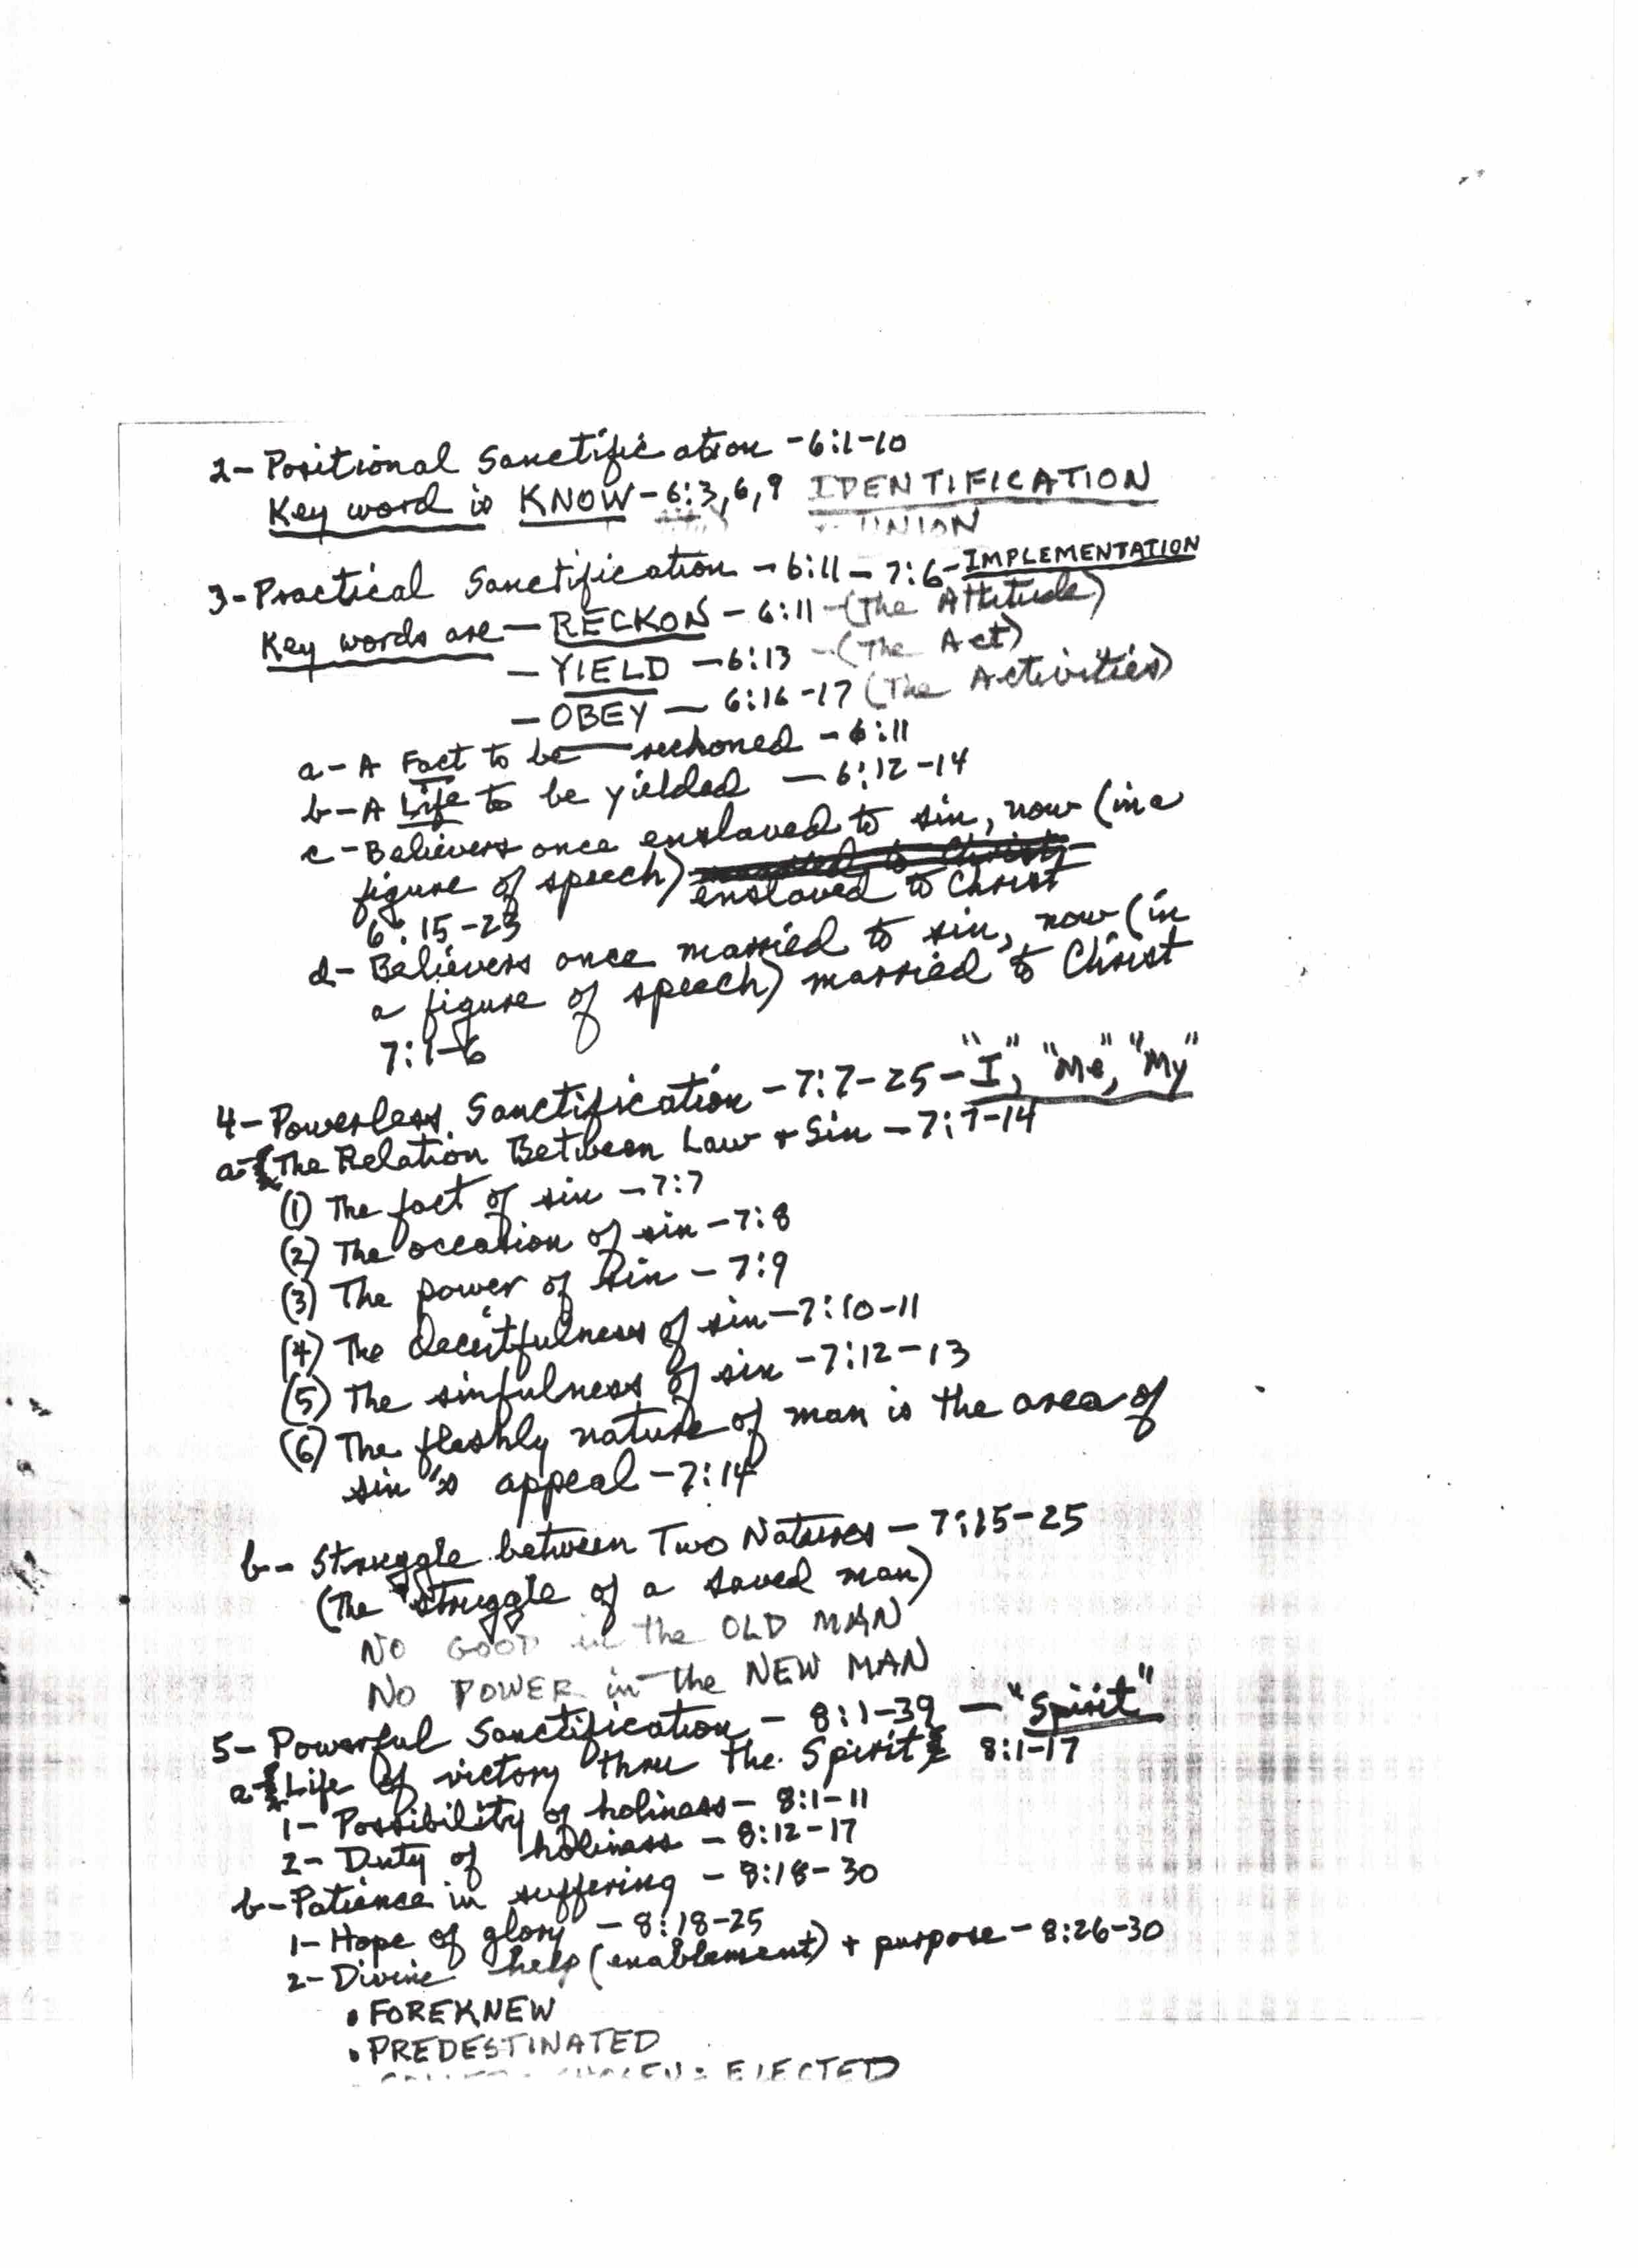 2- Positional Sanctification - 6:1-10
Key word is KNOW - 6:3,6,9 IDENTIFICATION
UNION
3- Practical Sanctification - 6:11 - 7:6 - IMPLEMENTATION
Key words are - RECKON - 6:11 - (The Attitude)
- YIELD - 6:13 - (The Act)
- OBEY - 6:16-17 (The Activities)
a- A Fact to be reckoned - 6:11
b- A Life to be yielded - 6:12-14
c- Believers once enslaved to sin, now (in a
figure of speech) married to Christ
enslaved to Christ
6:15-23
d- Believers once married to sin, now (in
a figure of speech) married to Christ
7:1-6
4- Powerless Sanctification - 7:7-25 - "I", "Me", "My"
a- The Relation Between Law + Sin - 7:7-14
(1) The fact of sin - 7:7
(2) The occasion of sin - 7:8
(3) The power of sin - 7:9
(4) The deceitfulness of sin - 7:10-11
(5) The sinfulness of sin - 7:12-13
(6) The fleshly nature of man is the area of
sin's appeal - 7:14
b- Struggle between Two Natures - 7:15-25
(The struggle of a saved man)
NO GOOD in the OLD MAN
NO POWER in the NEW MAN
5- Powerful Sanctification - 8:1-39 - "Spirit"
a- Life of victory thru the Spirit 8:1-17
1- Possibility of holiness - 8:1-11
2- Duty of holiness - 8:12-17
b- Patience in suffering - 8:18-30
1- Hope of glory - 8:18-25
2- Divine help (enablement) + purpose - 8:26-30
• FOREKNEW
• PREDESTINATED
ELECTED